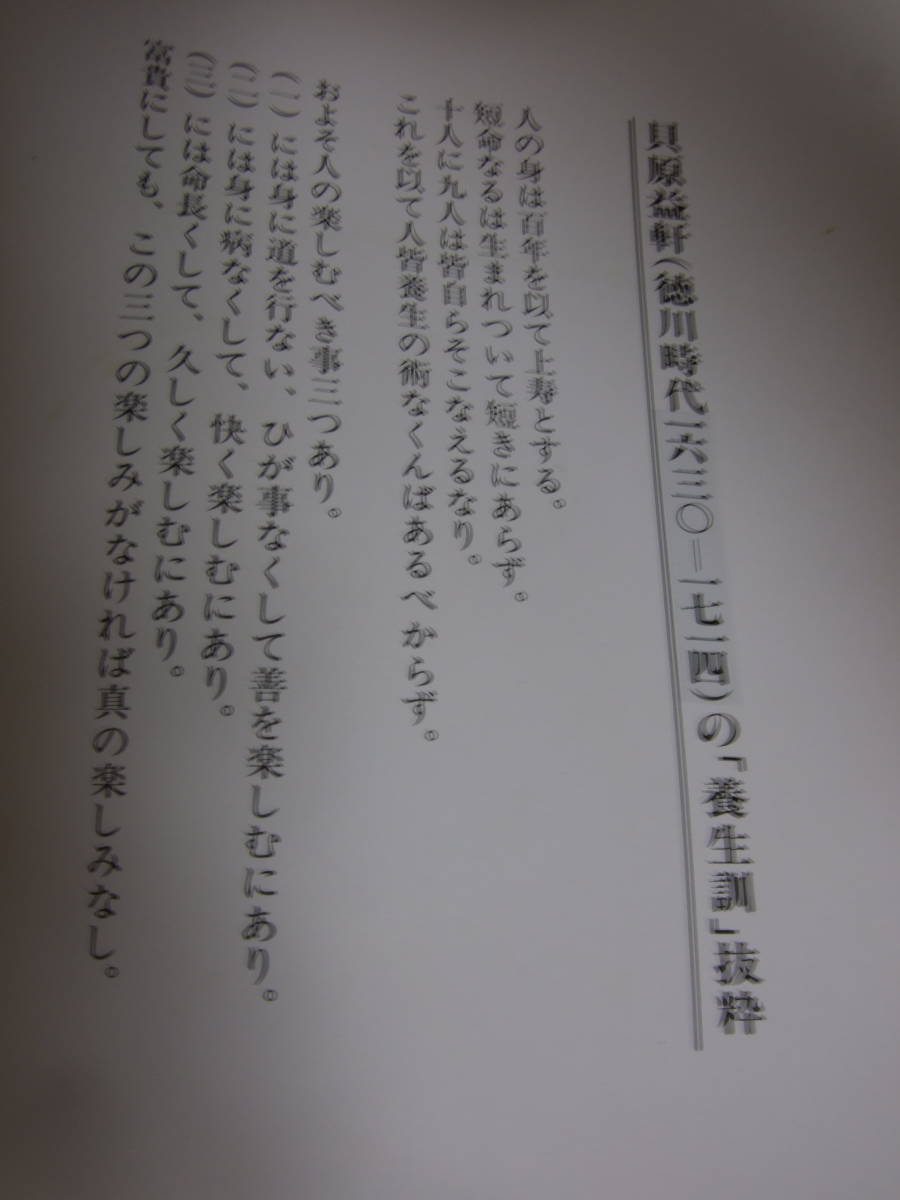 貝原益軒(徳川時代一六三〇=一七一四)の「養生訓」抜粋
人の身は百年を以て上寿とする。
短命なるは生まれついて短きにあらず。
十人に九人は皆自らそこなえるなり。
これを以て人皆養生の術なくんばあるべからず。
およそ人の楽しむべき事三つあり。
(一)には身に道を行ない、ひが事なくして善を楽しむにあり。
(二)には身に病なくして、快く楽しむにあり。
(三)には命長くして、久しく楽しむにあり。
富貴にしても、この三つの楽しみがなければ真の楽しみなし。